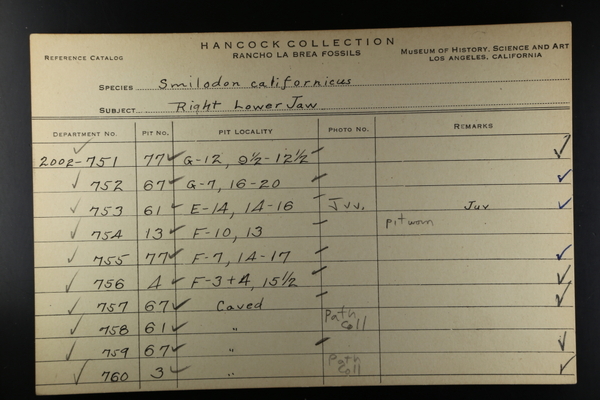 HANCOCK COLLECTION
REFERENCE CATALOG RANCHO LA BREA FOSSILS MUSEUM OF HISTORY, SCIENCE AND ART
LOS ANGELES, CALIFORNIA
SPECIES Smilodon californicus
SUBJECT Right Lower Jaw
DEPARTMENT NO. PIT NO. PIT LOCALITY PHOTO NO. REMARKS
2002-751 77 G-12, 9½-12½
752 67 G-7, 16-20
753 61 E-14, 14-16 Juv. Juv
754 13 F-10, 13 pit worn
755 77 F-7, 14-17
756 4 F-3+4, 15½
757 67 Caved
758 61 " Path Coll
759 67 "
760 3 " Path Coll